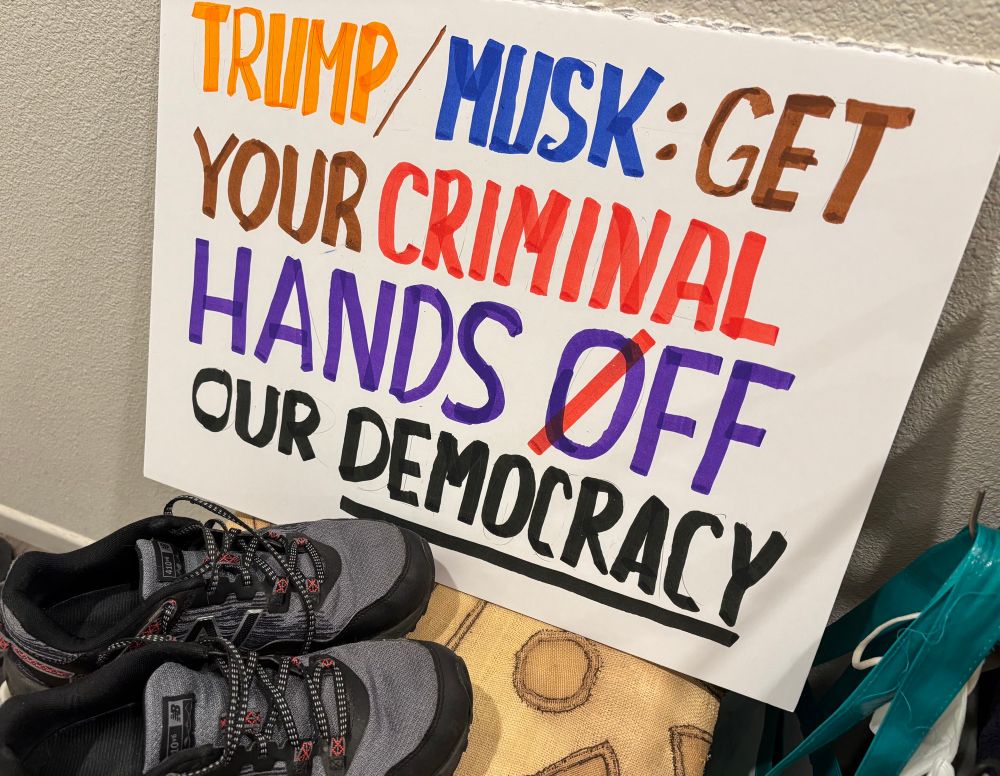 TRUMP/MUSK: GET
YOUR CRIMINAL
HANDS OFF
OUR DEMOCRACY